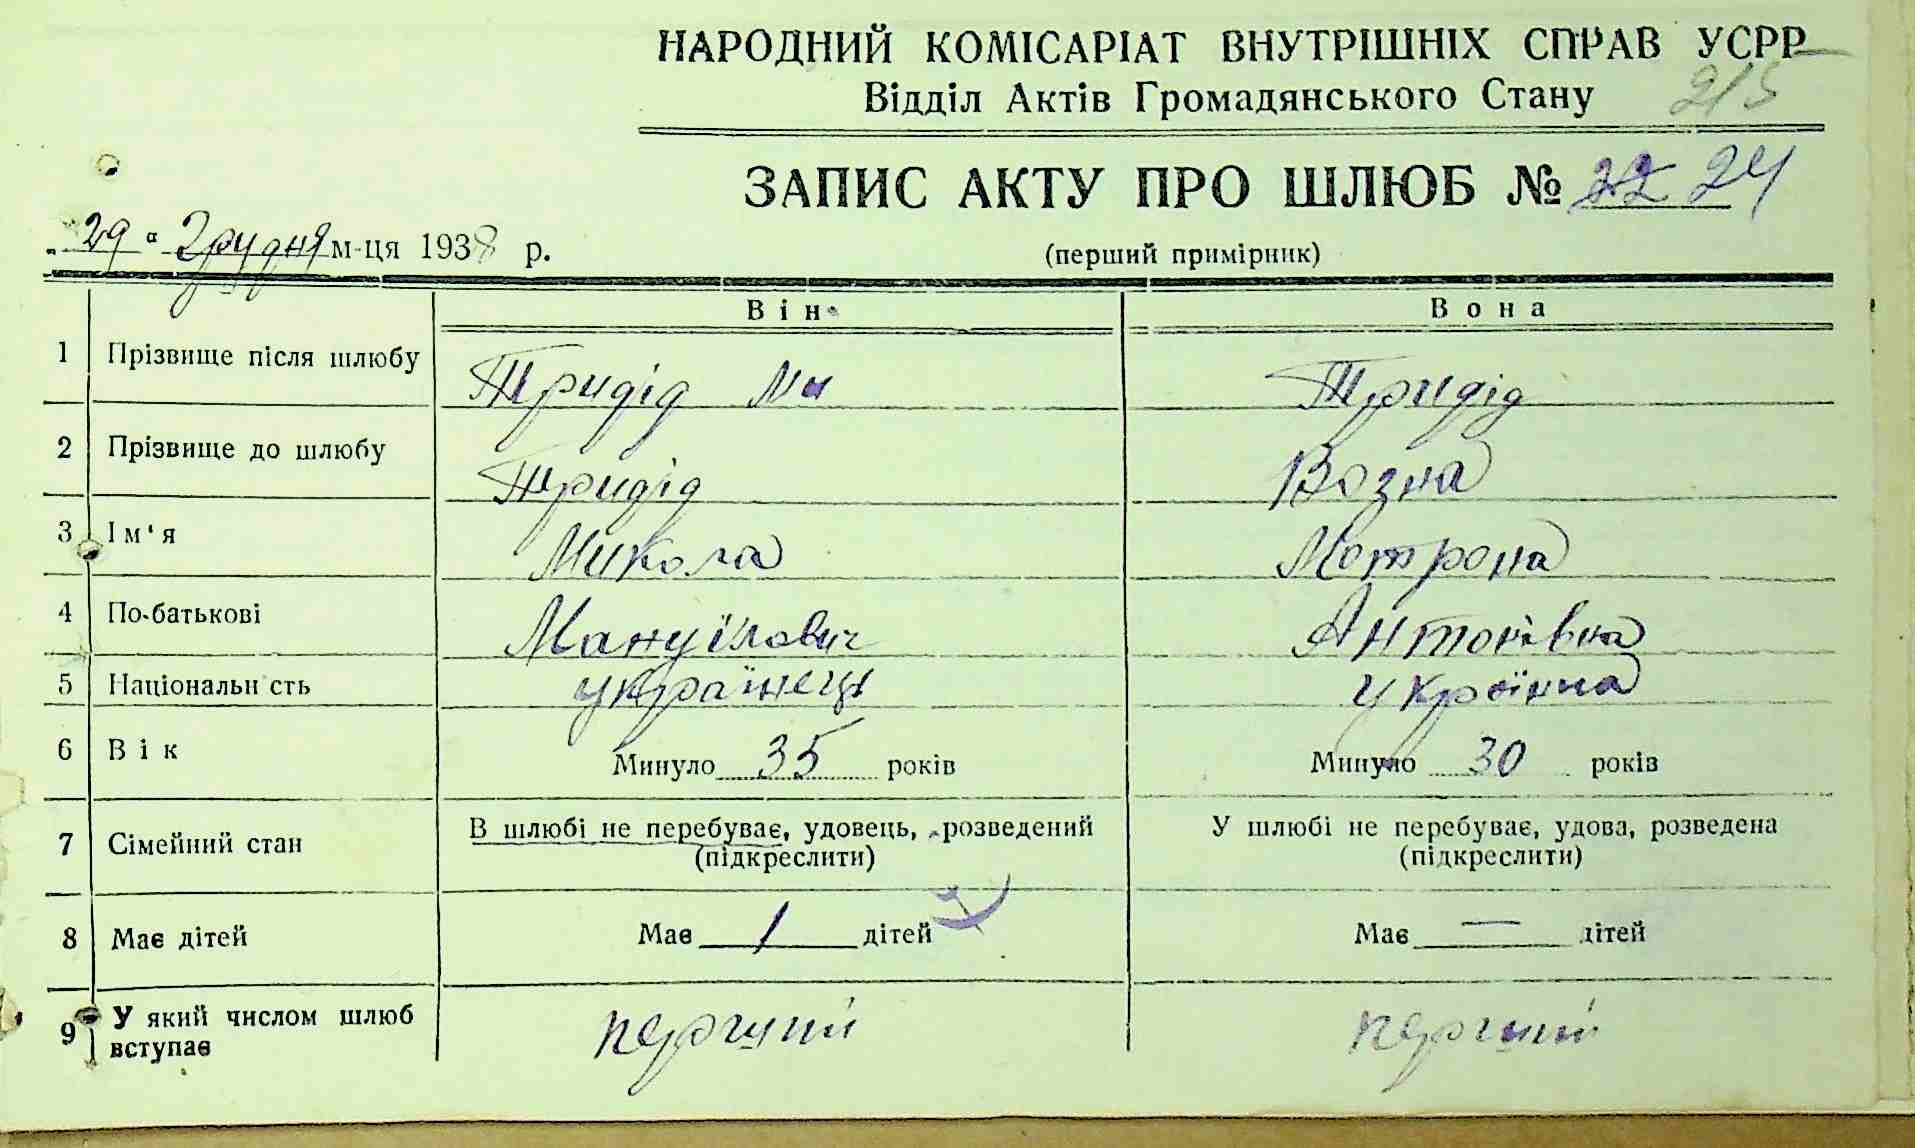 НАРОДНИЙ КОМІСАРІАТ ВНУТРІШНІХ СПРАВ УСРР
Відділ Актів Громадянського Стану 215
ЗАПИС АКТУ ПРО ШЛЮБ № 22 24
„29“ Грудня м-ця 1938 р.
(перший примірник)
Він Вона
1 Прізвище після шлюбу Тридід Ми Тридід
2 Прізвище до шлюбу Тридід Возна
3 Ім'я Микола Мотрона
4 По-батькові Мануїлович Антонівна
5 Національн сть українець українка
6 Вік Минуло 35 років Минуло 30 років
7 Сімейний стан В шлюбі не перебуває, удовець, розведений У шлюбі не перебуває, удова, розведена
(підкреслити) (підкреслити)
8 Має дітей Має 1 дітей Має — дітей
9 У який числом шлюб вступає перший перший